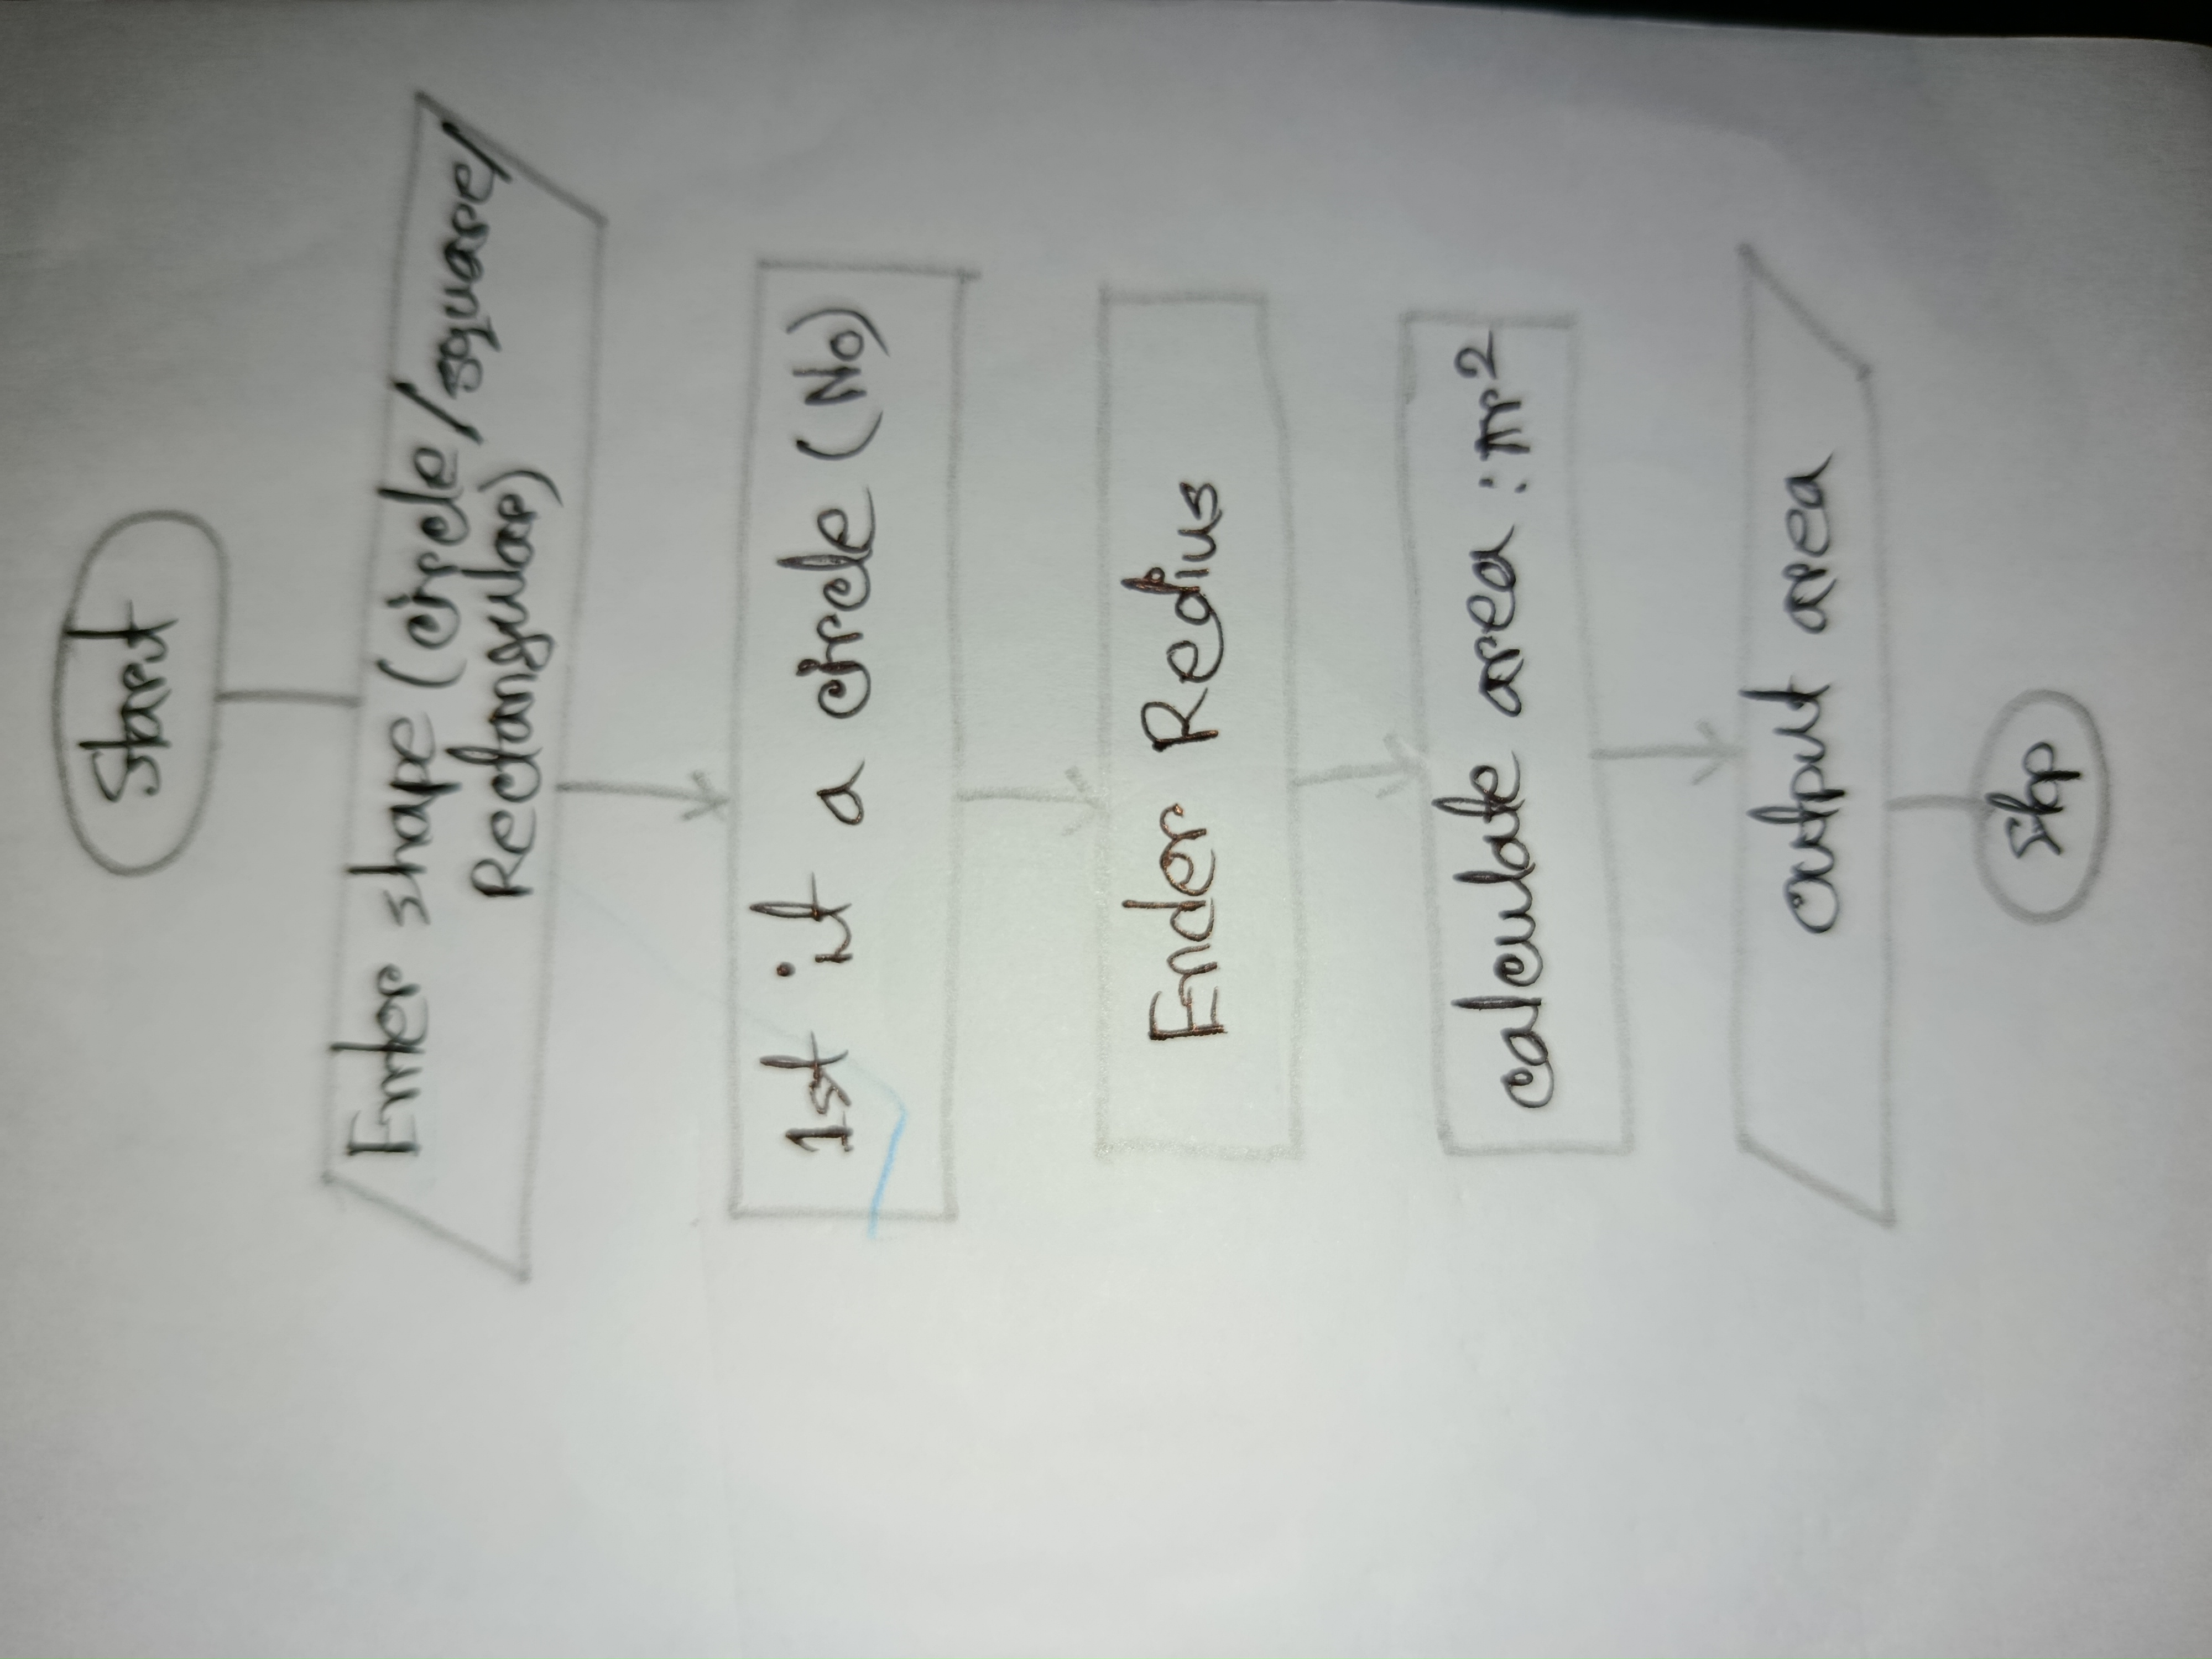 Start
Enter shape (circle/square/
Rectangular)
1st it a circle (No)
Ender Redius
calculate area : πr²
output area
stop